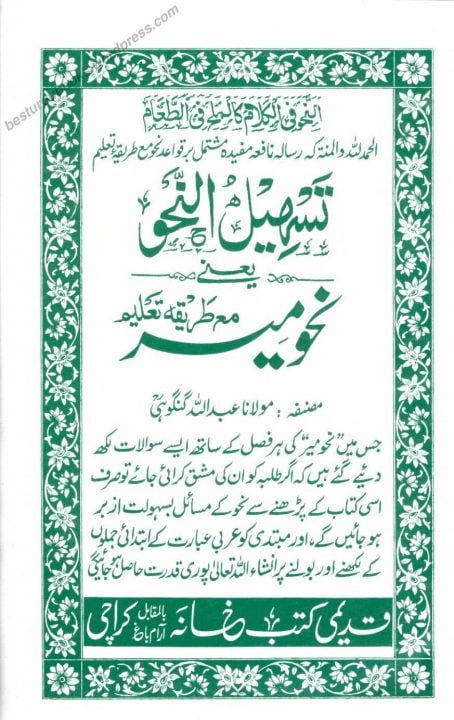 besturdubooks.wordpress.com
النحو فی الکلام کالملح فی الطعام
الحمد للہ والمنۃ کہ رسالہ نافعہ مفیدہ مشتمل بر قواعد نحو مع طریقۂ تعلیم
تَسۡہِیۡلُ النَّحۡو
یعنے
نحو میر مع طریقہ تعلیم
مصنفہ : مولانا عبد اللہ گنگوہیؒ
جس میں "نحو میر" کی ہر فصل کے ساتھ ایسے سوالات لکھ
دیئے گئے ہیں کہ اگر طلبہ کو ان کی مشق کرائی جائے تو صرف
اسی کتاب کے پڑھنے سے نحو کے مسائل بسہولت ازبر
ہو جائیں گے، اور مبتدی کو عربی عبارت کے ابتدائی جملوں
کے لکھنے اور بولنے پر انشاء اللہ تعالٰی پوری قدرت حاصل ہو جائیگی
قدیمی کتب خانہ بالمقابل آرام باغ کراچی